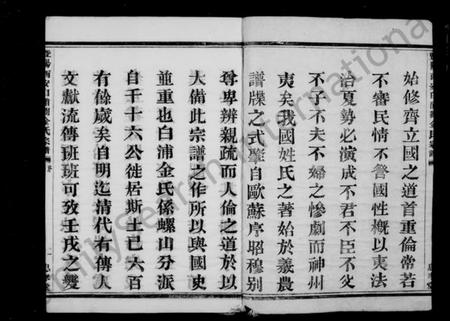 始修齊立國之道首重倫常若
不審民情不暬國性概以夷法
治夏勢必演成不君不臣不父
不子不夫不婦之慘劇而神州
夷矣我國姓氏之著始於羲農
譜牒之式肇自歐蘇序昭穆别
尊卑辨親疏而人倫之道於以
大備此宗譜之作所以與國史
並重也白浦金氏係螺山分派
自千十六公徙居斯土已六百
有餘歲矣自明迄清代有傳人
文獻流傳班班可致壬戌之變
FamilySearch International